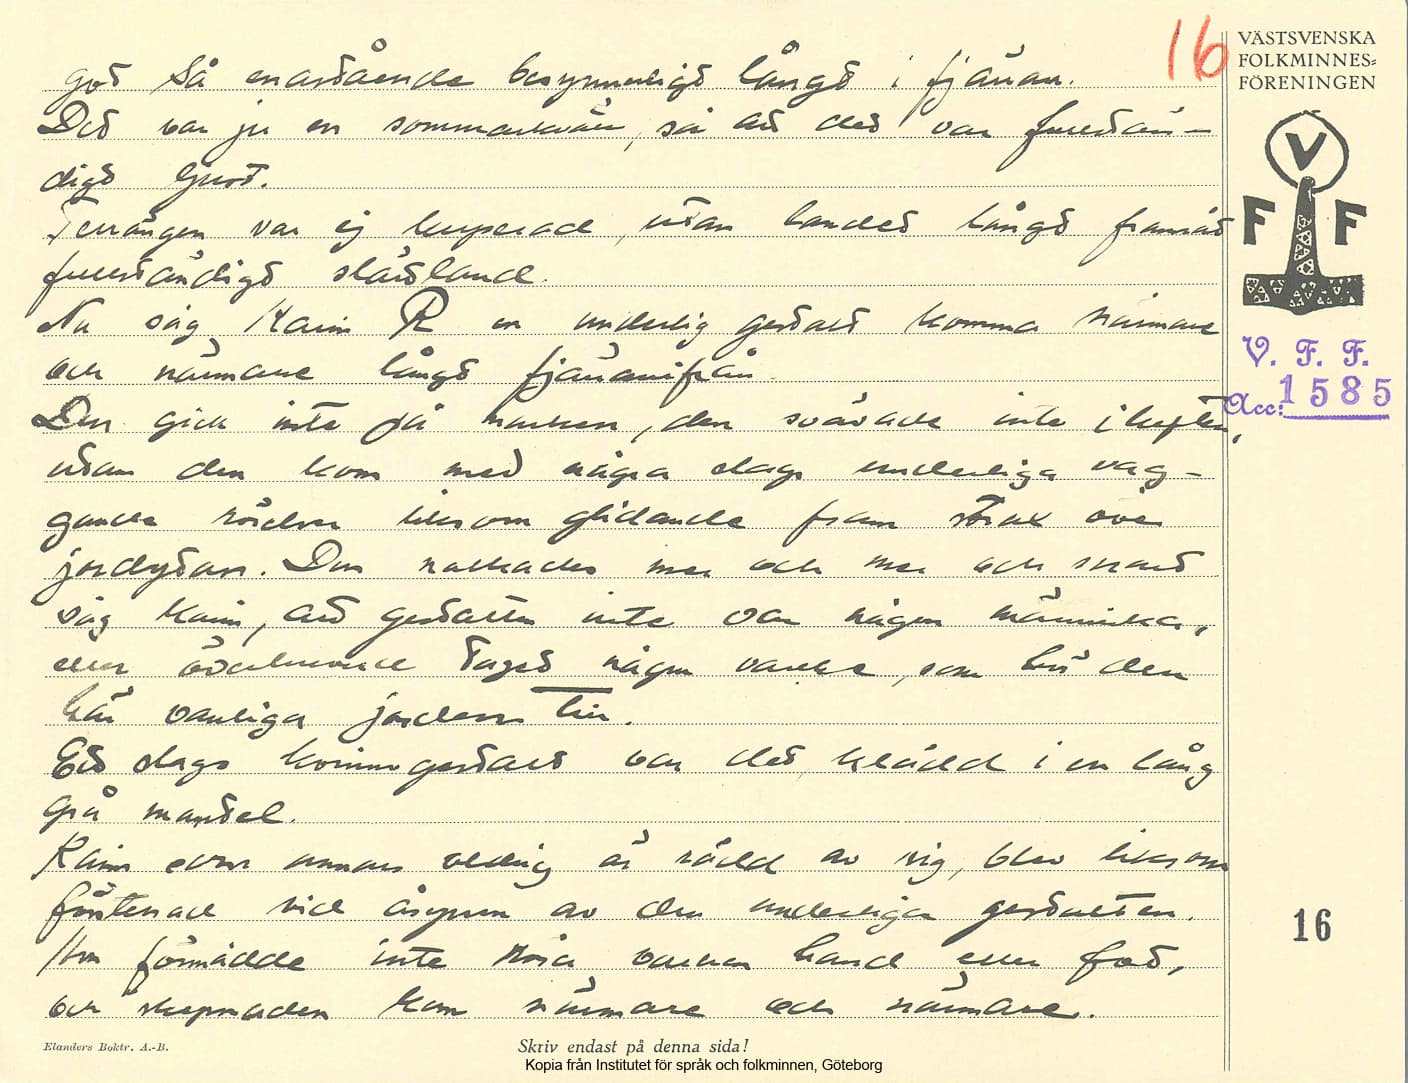 16
VÄSTSVENSKA
FOLKMINNES=
FÖRENINGEN
V
F F
V. F. F.
Acc: 1585
got så enastående besynnerligt långt i fjärran.
Det var ju en sommarkväll, så att det var fullstän-
digt ljust.
Terrängen var ej kuperad, utan landet långt framåt
fullständigt slättland.
Nu såg Karin R en underlig gestalt komma närmare
och närmare långt fjärranifrån.
Den gick inte på marken, den svävade inte i luften,
utan den kom med några slags underliga vag-
gande rörelser liksom glidande fram strax över
jordytan. Den nalkades mer och mer och snart
såg Karin, att gestalten inte var någon människa,
eller överhuvud taget någon varelse, som hör den
här vanliga jorden till.
Ett slags kvinnogestalt var det, klädd i en lång
grå mantel.
Karin som annars aldrig är rädd av sig, blev liksom
förstenad vid åsynen av den underliga gestalten.
Hon förmådde inte röra varken hand eller fot,
och skepnaden kom närmare och närmare.
16
Elanders Boktr. A.-B.
Skriv endast på denna sida!
Kopia från Institutet för språk och folkminnen, Göteborg